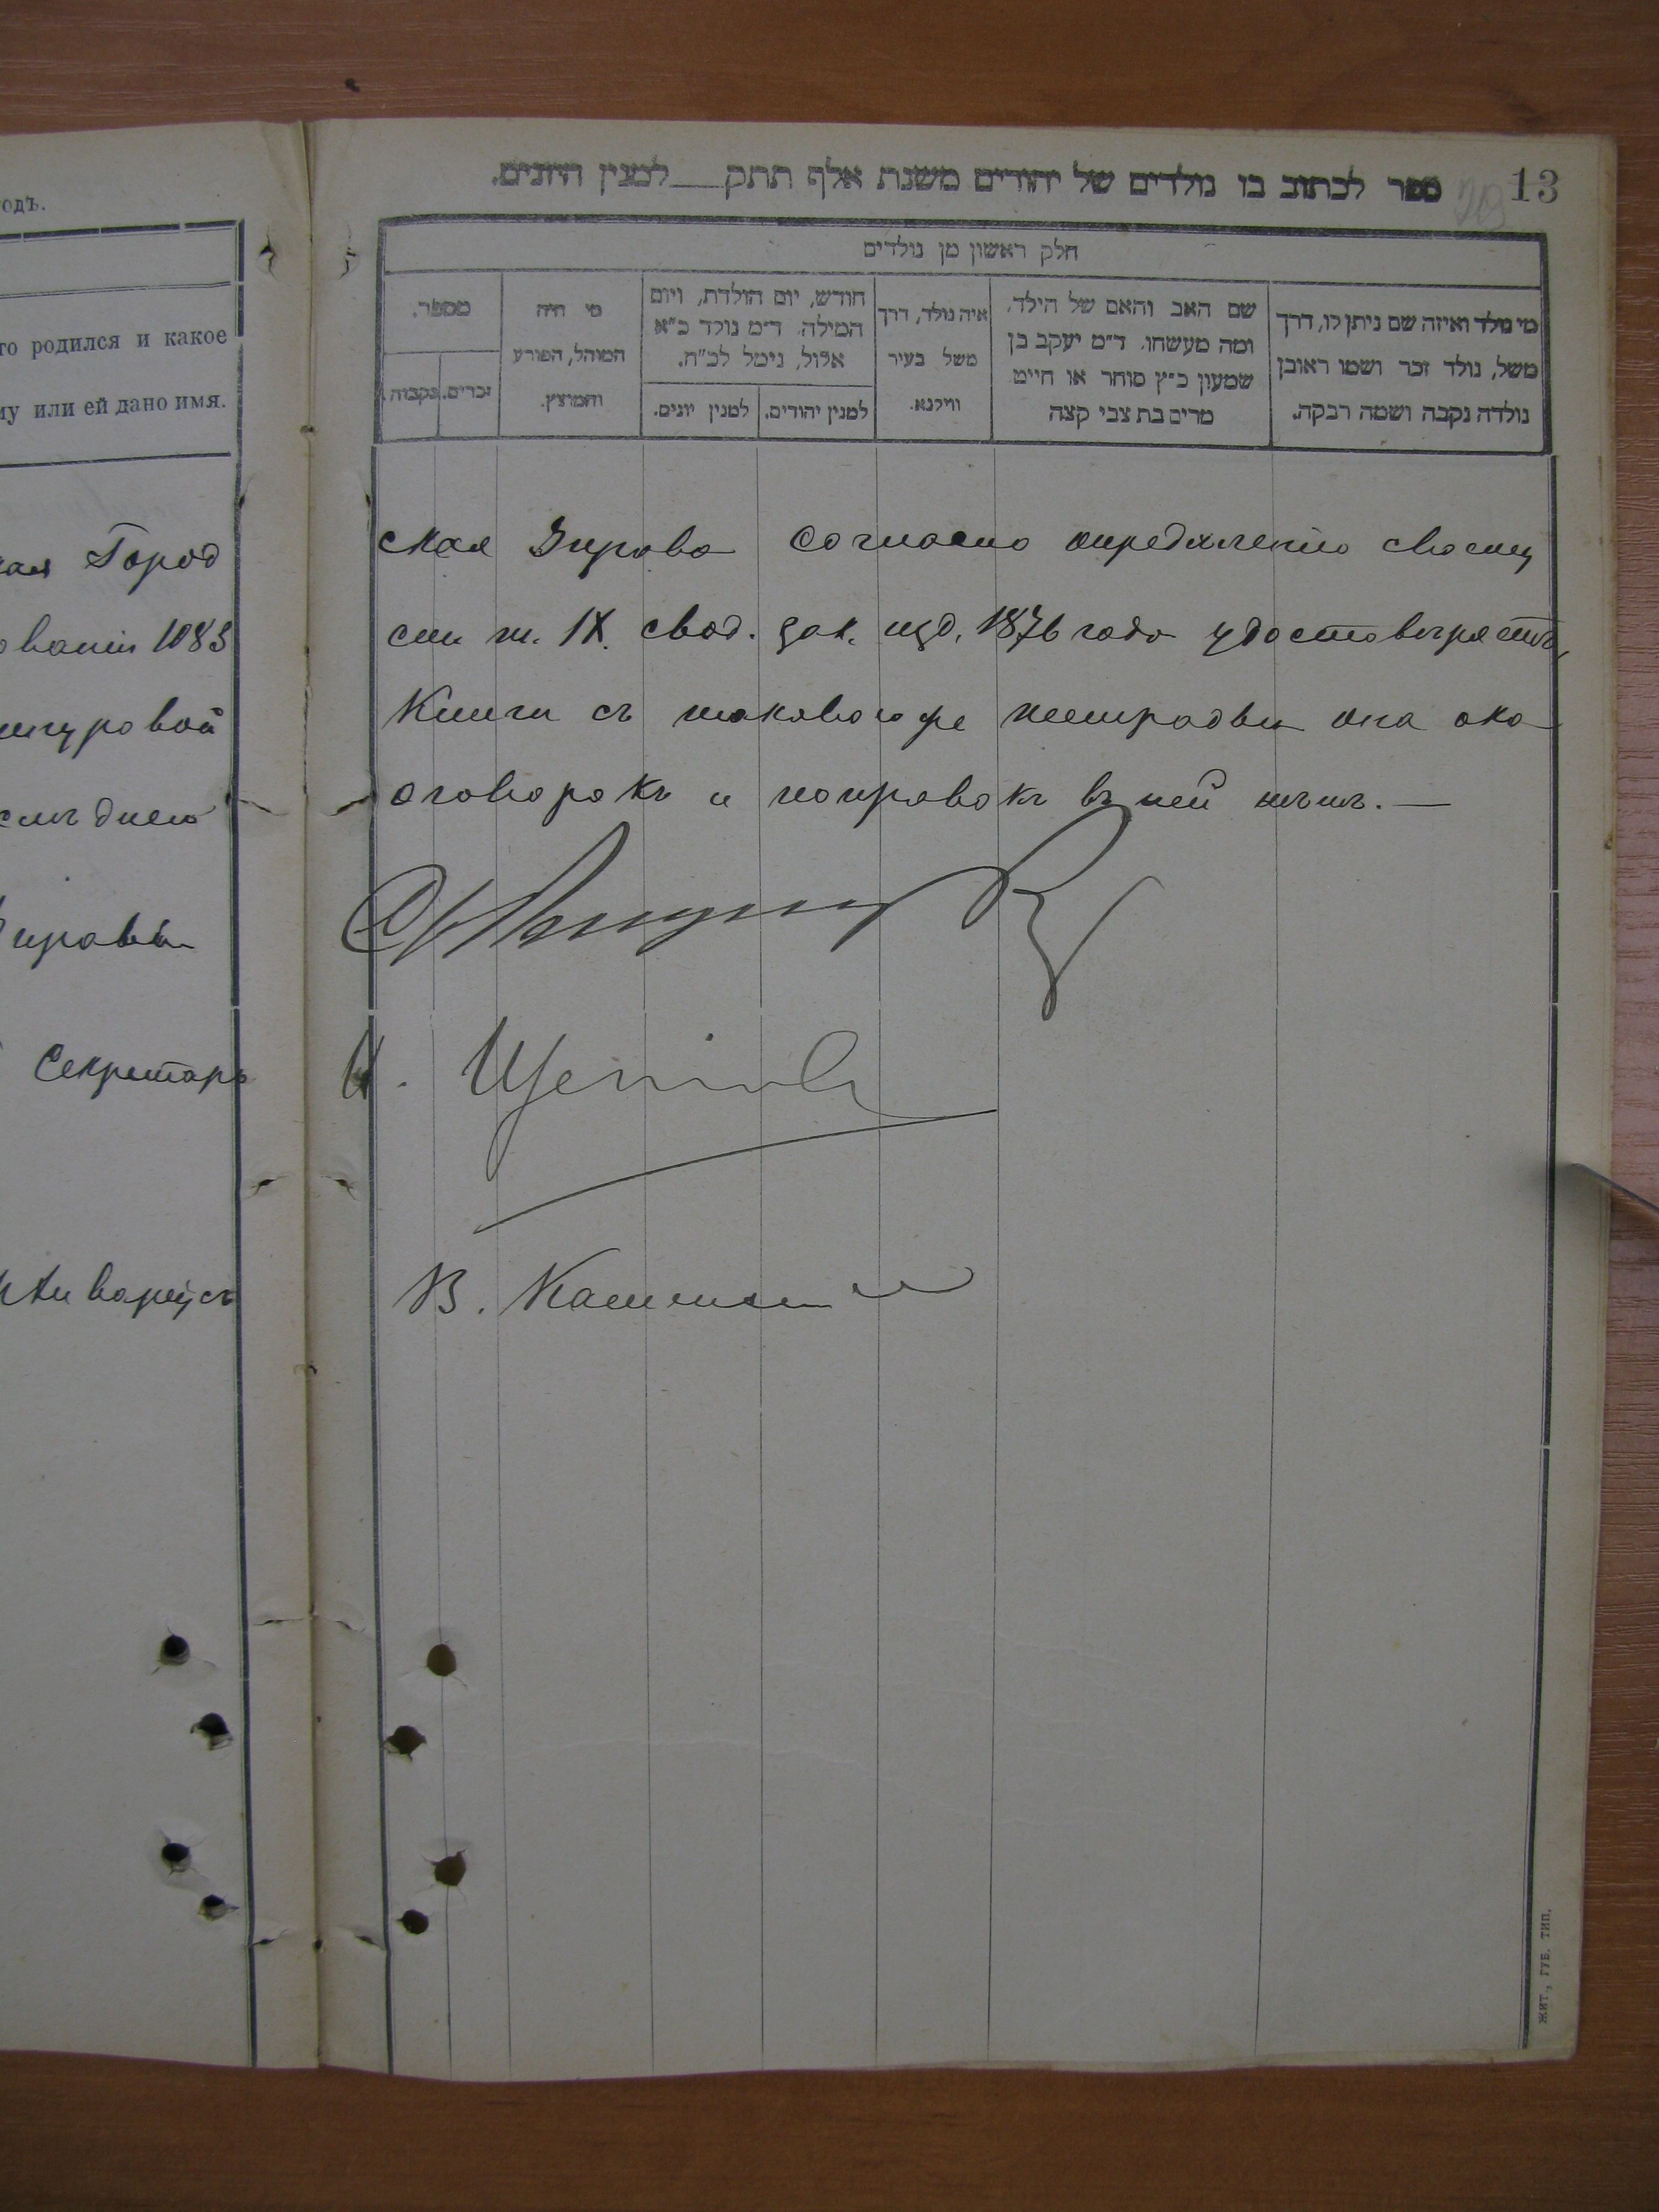 одъ.
го родился и какое
му или ей дано имя.
Город
ованія 1083
нуровой
днею
Управы
Секретарь
13
ספר לכתוב בו נולדים של יהודים משנת אלף תתק למנין היונים.
חלק ראשון מן נולדים
מי נולד ואיזה שם ניתן לו, דרך
משל, נולד זכר ושמו ראובן
נולדה נקבה ושמה רבקה.
שם האב והאם של הילד,
ומה מעשהו. ד״מ יעקב בן
שמעון כ״ץ סוחר או חייט
מרים בת צבי קצה
איה נולד, דרך
משל בעיר
ווילנא.
חודש, יום הולדת, ויום
המילה. ד״מ נולד כ״א
אלול, נימל לכ״ח.
למנין יהודים.
למנין יונים.
מי היה
המוהל, הפורע
והמוצץ.
מספר.
זכרים.
נקבות.
ская Управа согласно опредѣленію своему
см т. IX. свод. зак. изд. 1876 года удостовѣряетъ,
Книги съ таковою же тетрадки она ока
оговорокъ и поправокъ въ ней нѣтъ. —
В.
ЖИТ., ГУБ. ТИП.